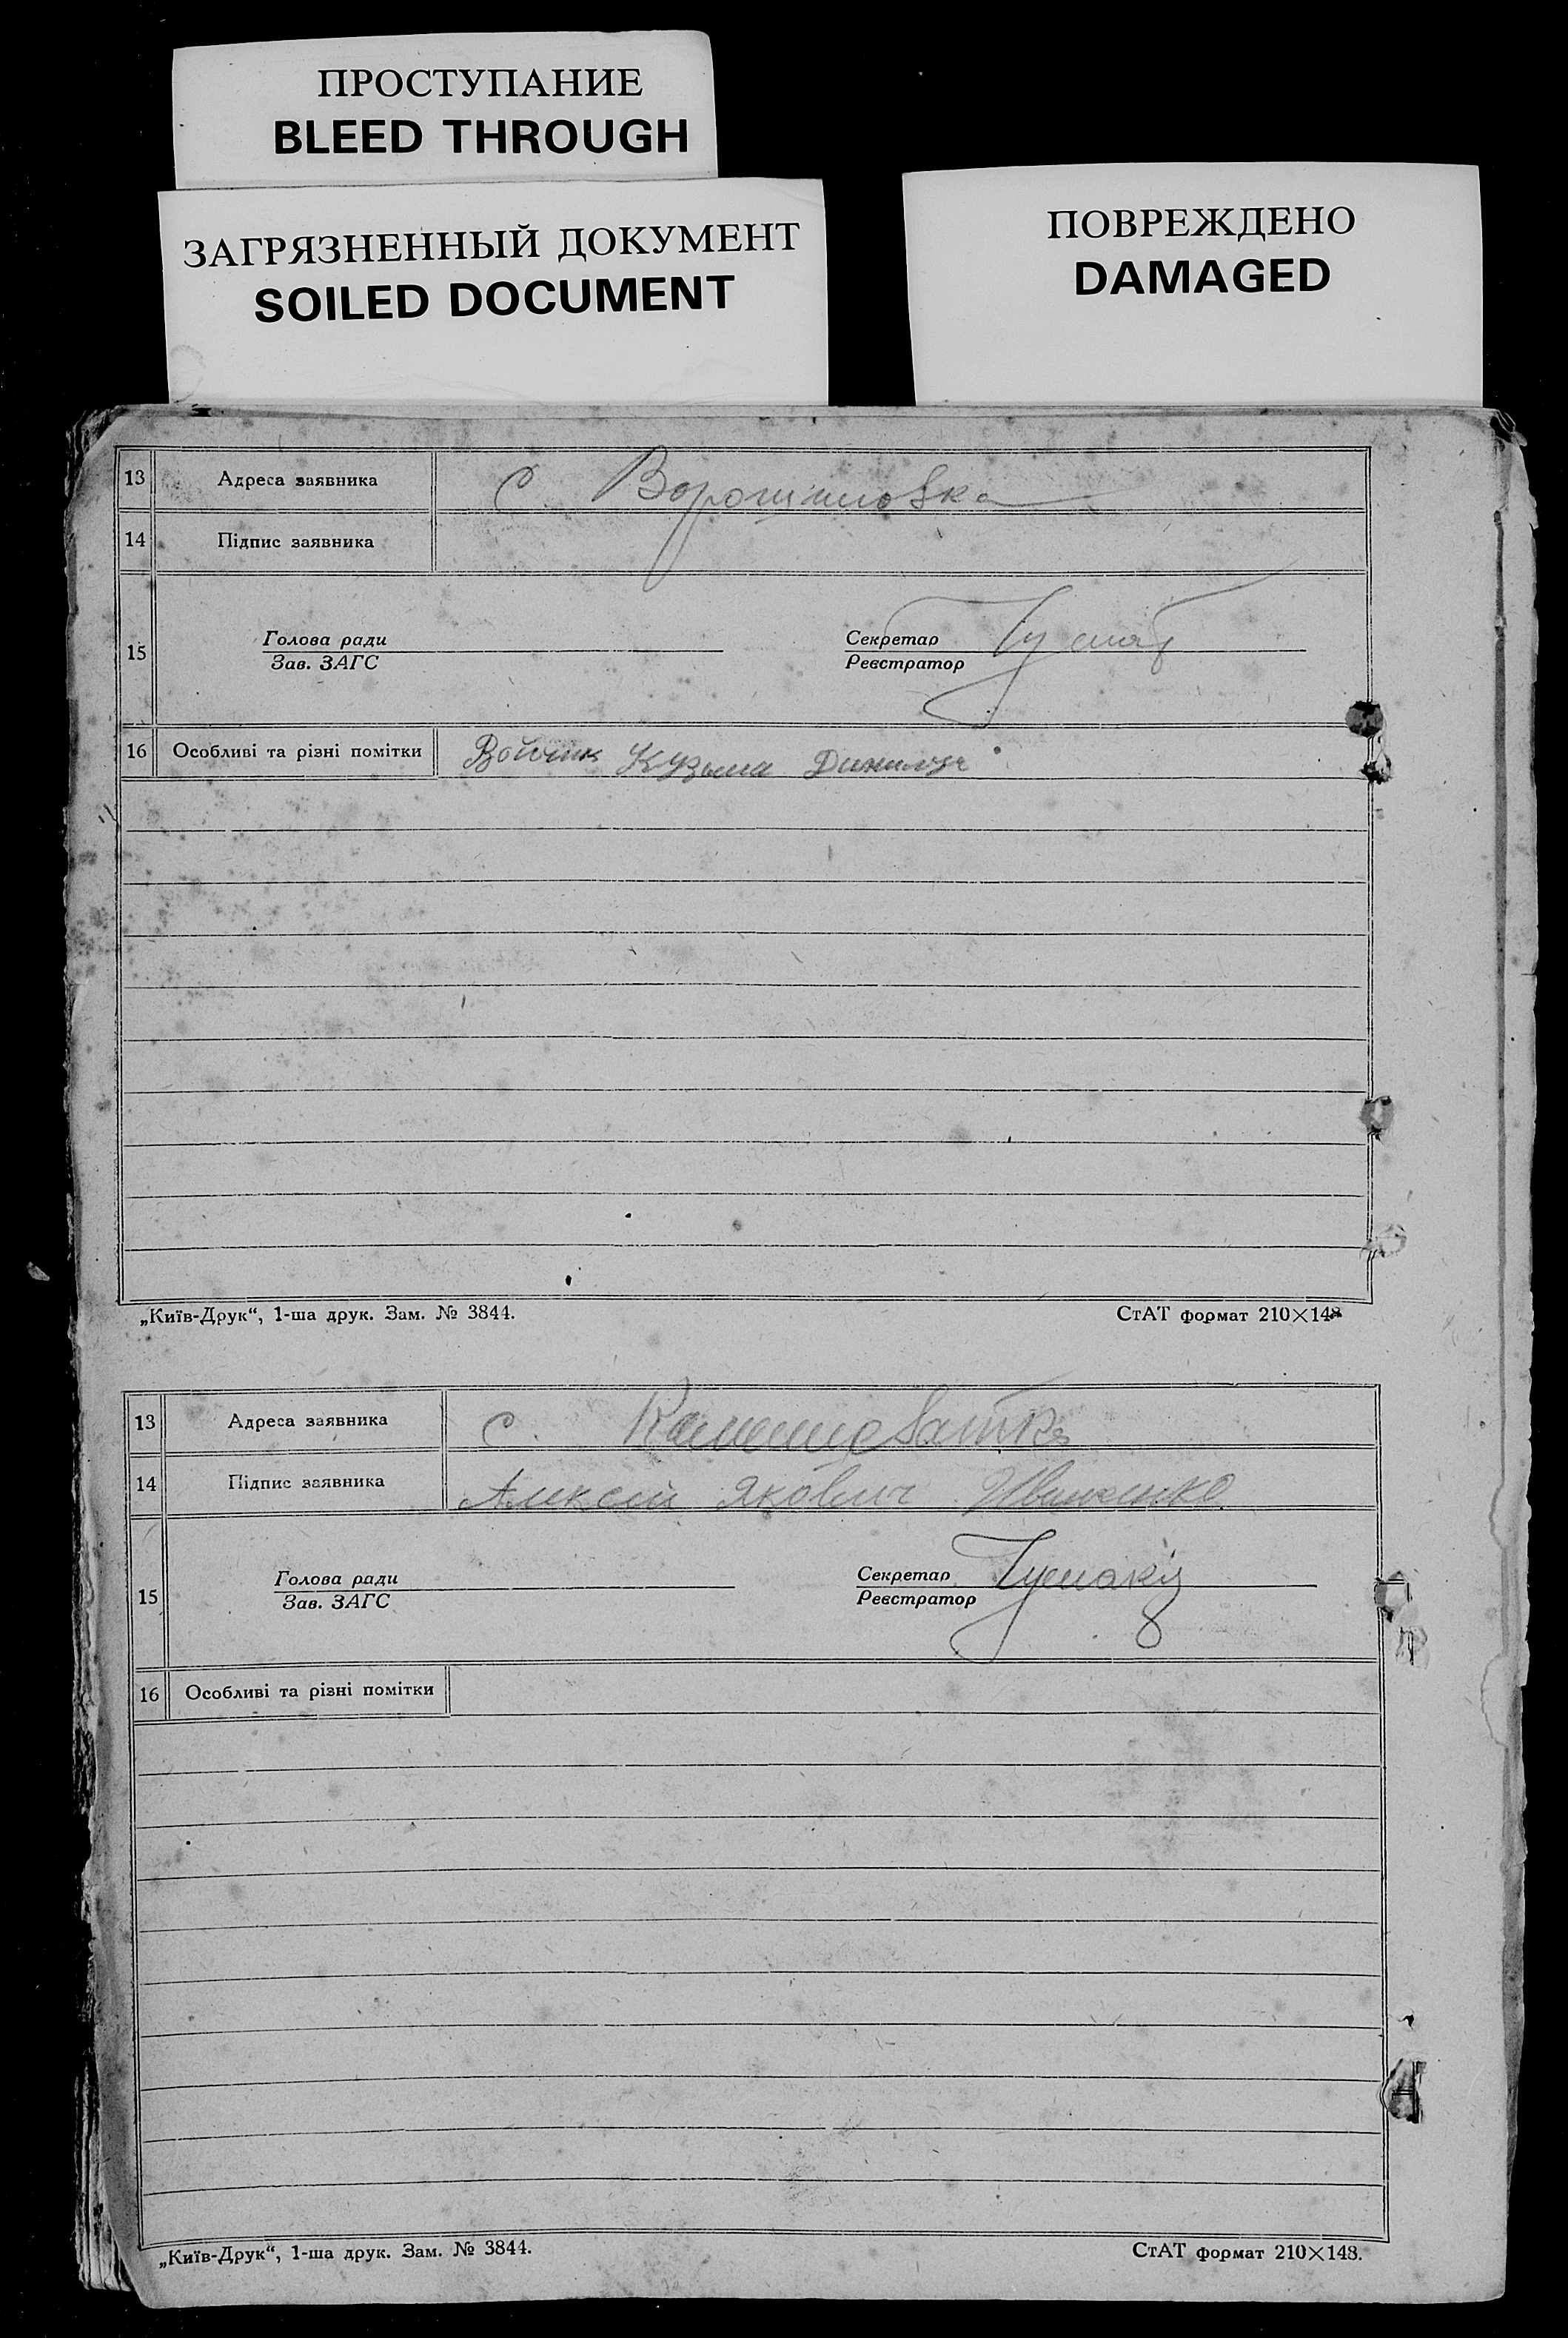 ПРОСТУПАНИЕ
BLEED THROUGH
ЗАГРЯЗНЕННЫЙ ДОКУМЕНТ
SOILED DOCUMENT
ПОВРЕЖДЕНО
DAMAGED
13 Адреса заявника С.
14 Підпис заявника
15 Голова ради Секретар
Зав. ЗАГС Реєстратор
16 Особливі та різні помітки Войчик Кузьма
„Київ-Друк“, 1-ша друк. Зам. № 3844. СтАТ формат 210×148
13 Адреса заявника с.
14 Підпис заявника Алексей Якович Иваненко
15 Голова ради Секретар
Зав. ЗАГС Реєстратор
16 Особливі та різні помітки
„Київ-Друк“, 1-ша друк. Зам. № 3844. СтАТ формат 210×148.